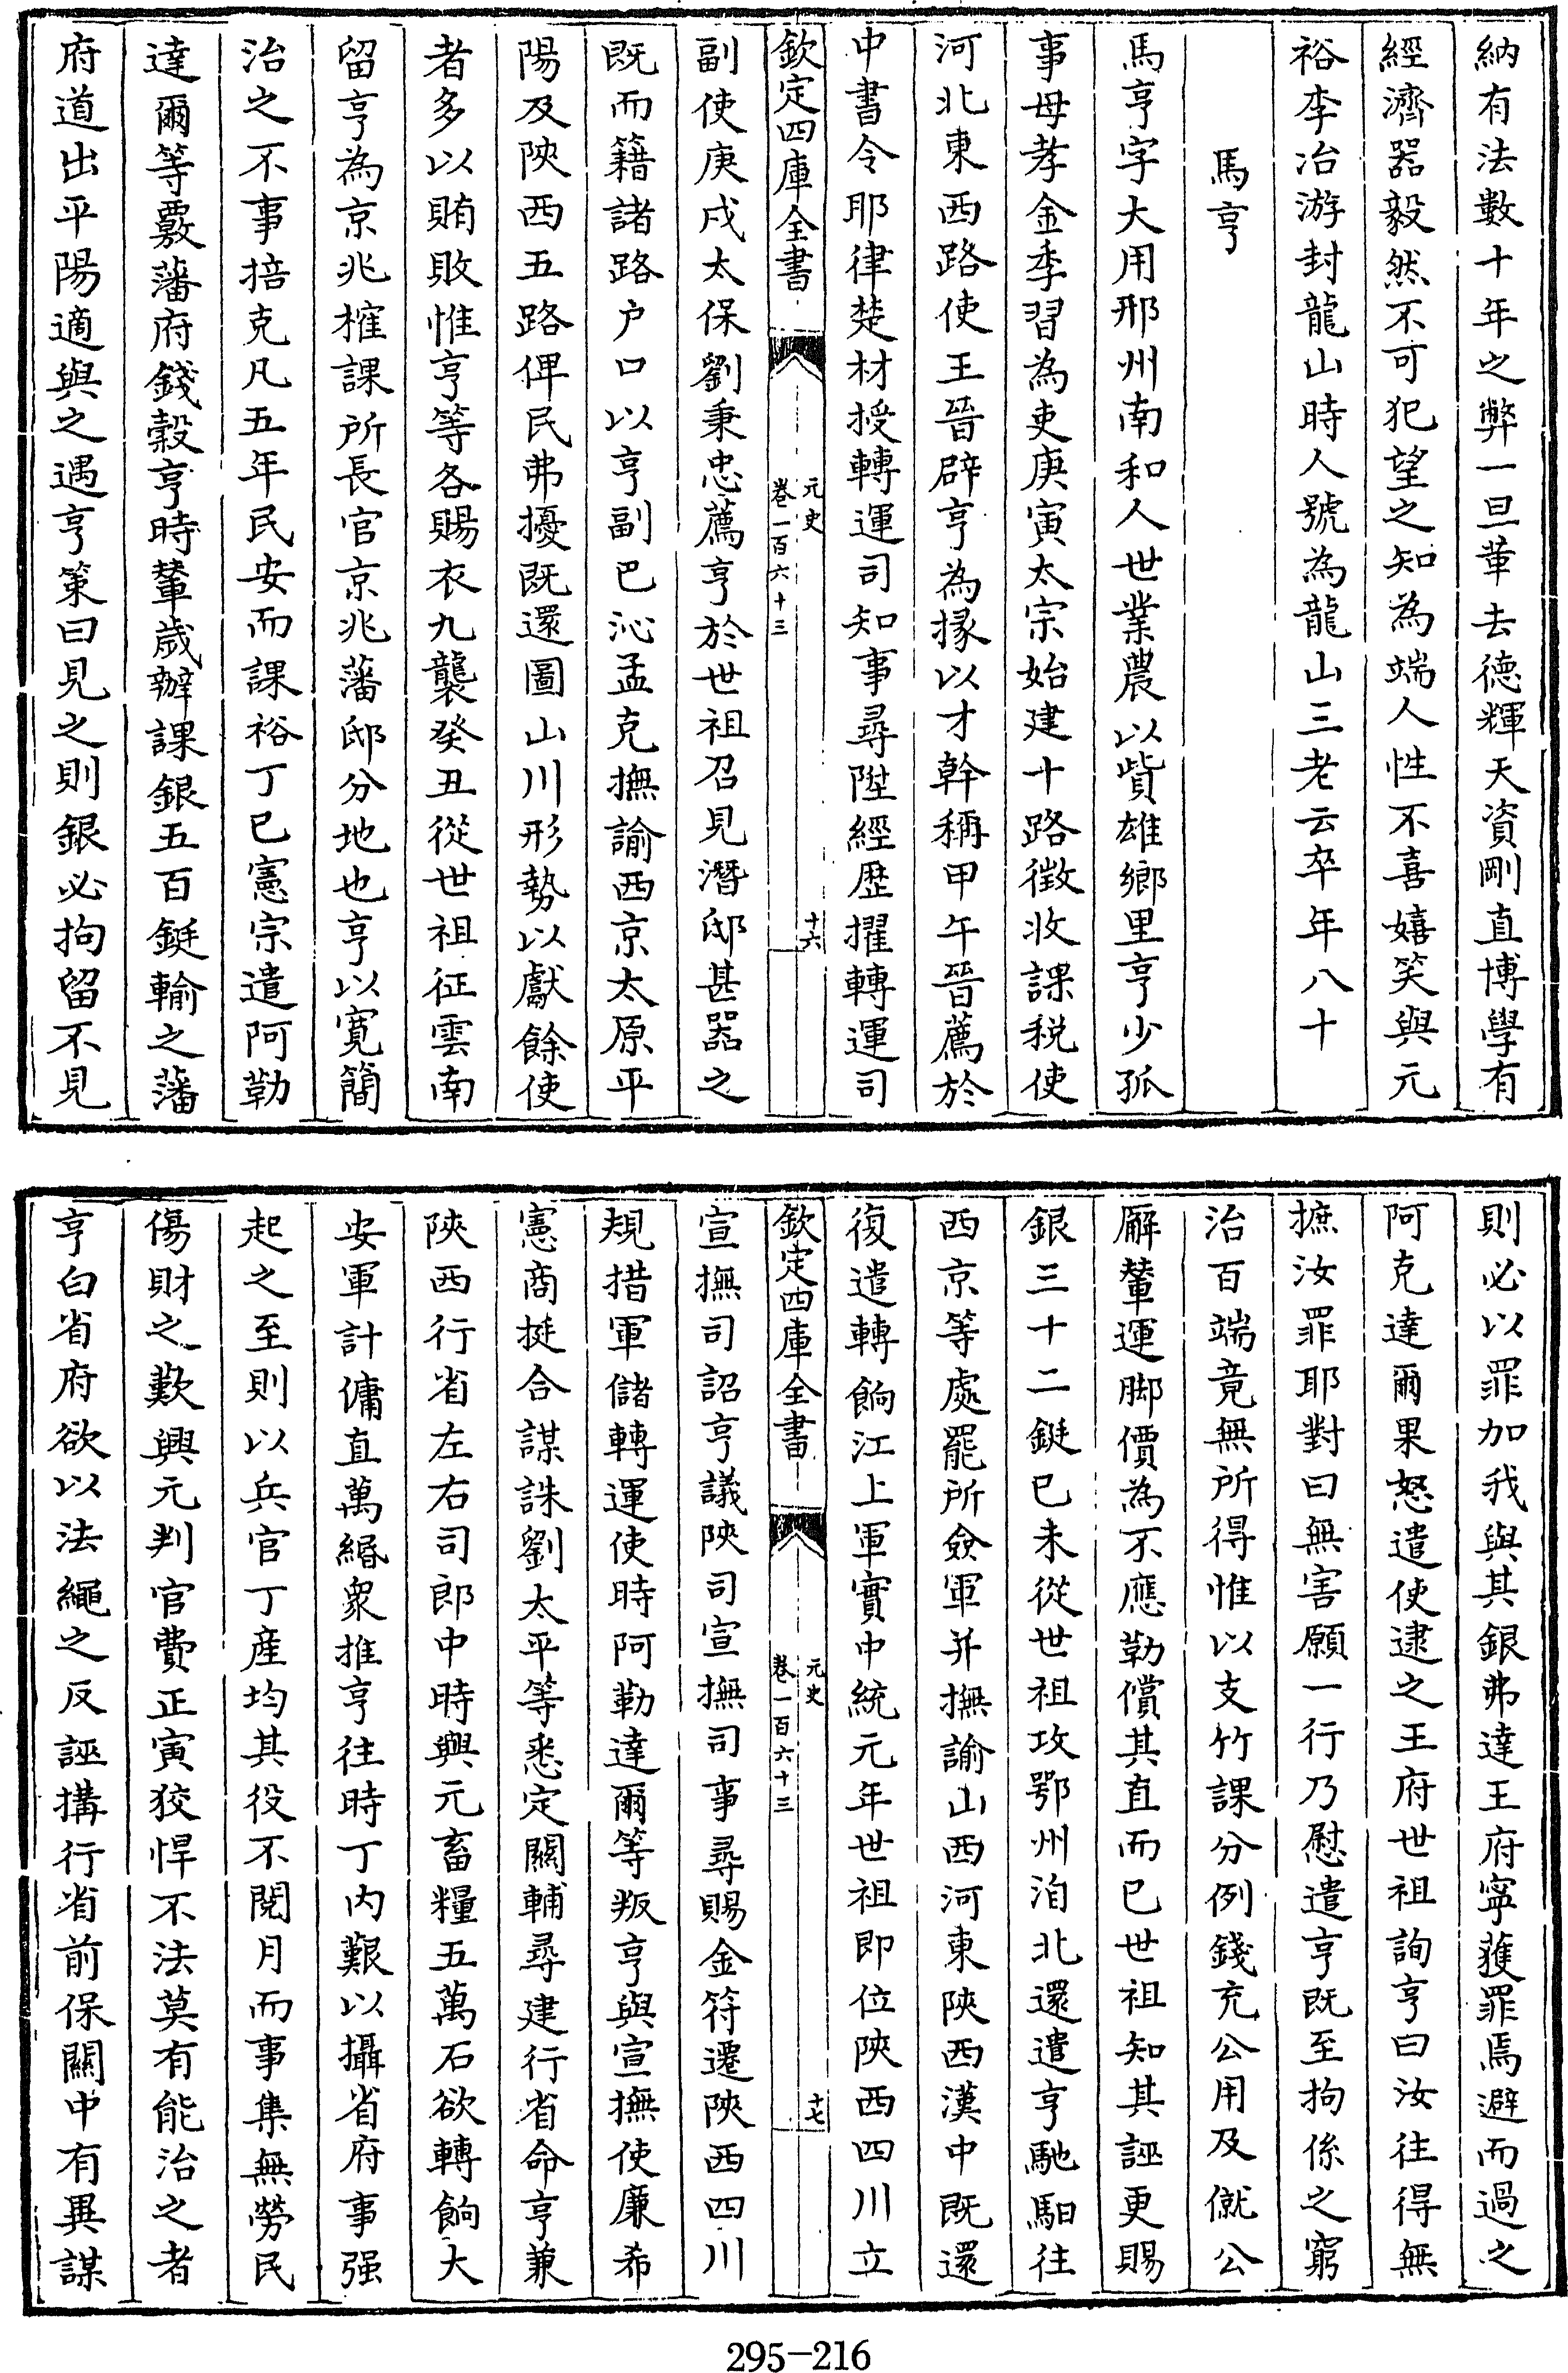 納有法數十年之弊一旦革去德輝天資剛直博學有
經濟器毅然不可犯望之知為端人性不喜嬉笑與元
裕李冶游封龍山時人號為龍山三老云卒年八十
馬亨
馬亨字大用邢州南和人世業農以貲雄鄉里亨少孤
事母孝金季習為吏庚寅太宗始建十路徵收課税使
河北東西路使王晉辟亨為掾以才幹稱甲午晉薦於
中書令耶律楚材授轉運司知事尋陞經歴擢轉運司
欽定四庫全書
元史
卷一百六十三
十六
副使庚戌太保劉秉忠薦亨於世祖召見潛邸甚器之
既而籍諸路户口以亨副巴沁孟克撫諭西京太原平
陽及陝西五路俾民弗擾既還圖山川形勢以獻餘使
者多以賄敗惟亨等各賜衣九襲癸丑從世祖征雲南
留亨為京兆榷課所長官京兆藩邸分地也亨以寛簡
治之不事掊克凡五年民安而課裕丁已憲宗遣阿勒
達爾等覈藩府錢穀亨時輦歲辦課銀五百鋌輸之藩
府道出平陽適與之遇亨策曰見之則銀必拘留不見
則必以罪加我與其銀弗達王府寧獲罪焉避而過之
阿克達爾果怒遣使逮之王府世祖詢亨曰汝往得無
摭汝罪耶對曰無害願一行乃慰遣亨既至拘係之窮
治百端竟無所得惟以支竹課分例錢充公用及僦公
廨輦運脚價為不應勒償其直而已世祖知其誣更賜
銀三十二鋌已未從世祖攻鄂州洎北還遣亨馳馹往
西京等處罷所僉軍并撫諭山西河東陝西漢中既還
復遣轉餉江上軍實中統元年世祖即位陝西四川立
欽定四庫全書
元史
卷一百六十三
十七
宣撫司詔亨議陝司宣撫司事尋賜金符遷陝西四川
規措軍儲轉運使時阿勒達爾等叛亨與宣撫使廉希
憲商挺合謀誅劉太平等悉定關輔尋建行省命亨兼
陝西行省左右司郎中時興元畜糧五萬石欲轉餉大
安軍計傭直萬緡衆推亨往時丁内艱以攝省府事强
起之至則以兵官丁產均其役不閱月而事集無勞民
傷財之歎興元判官費正寅狡悍不法莫有能治之者
亨白省府欲以法繩之反誣搆行省前保關中有異謀
295-216